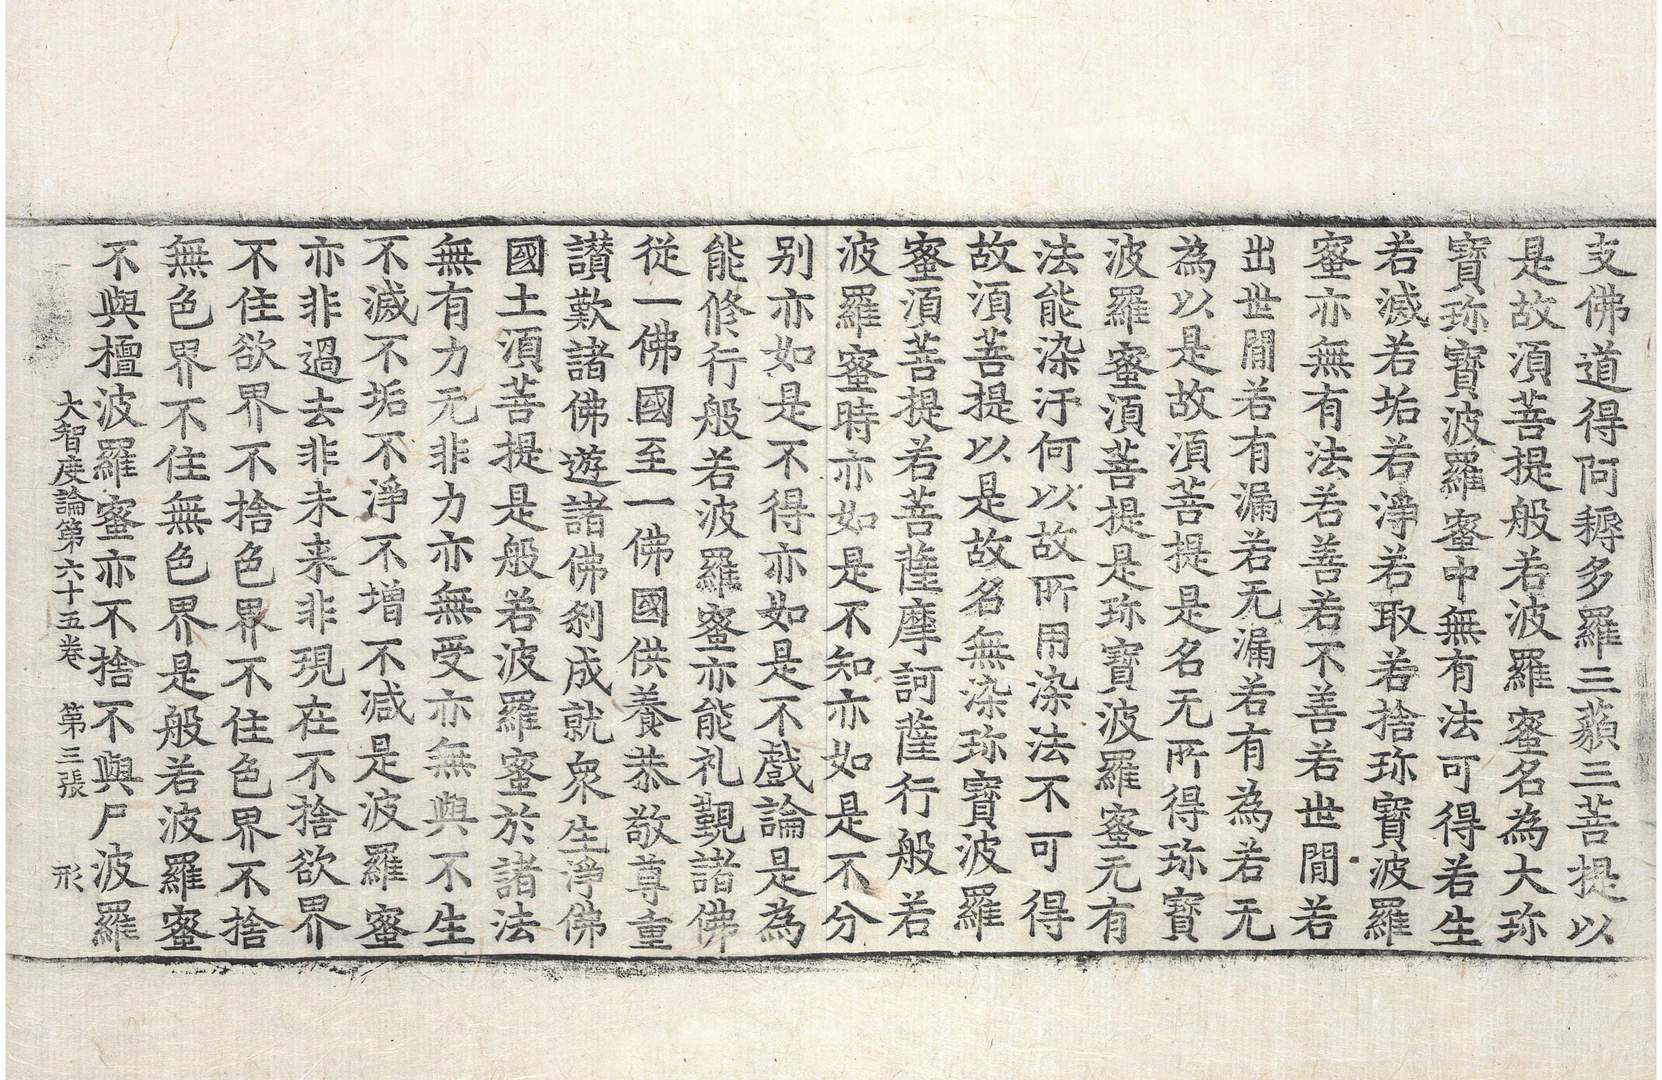 支佛道得阿耨多羅三藐三菩提以
是故湏菩提般若波羅蜜名為大珎
寶珎寶波羅蜜中無有法可得若生
若滅若垢若淨若取若捨珎寶波羅
蜜亦無有法若善若不善若世閒若
出世閒若有漏若无漏若有為若无
為以是故湏菩提是名无所得珎寶
波羅蜜湏菩提是珎寶波羅蜜无有
法能染汙何以故所用染法不可得
故湏菩提以是故名無染珎寶波羅
蜜湏菩提若菩薩摩訶薩行般若
波羅蜜時亦如是不知亦如是不分
別亦如是不得亦如是不戲論是為
能修行般若波羅蜜亦能礼覲諸佛
從一佛國至一佛國供養恭敬尊重
讃歎諸佛遊諸佛刹成就衆生淨佛
國土湏菩提是般若波羅蜜於諸法
無有力无非力亦無受亦無與不生
不滅不垢不淨不增不减是波羅蜜
亦非過去非未来非現在不捨欲界
不住欲界不捨色界不住色界不捨
無色界不住無色界是般若波羅蜜
不與檀波羅蜜亦不捨不與尸波羅
大智度論第六十五卷　第三張　形